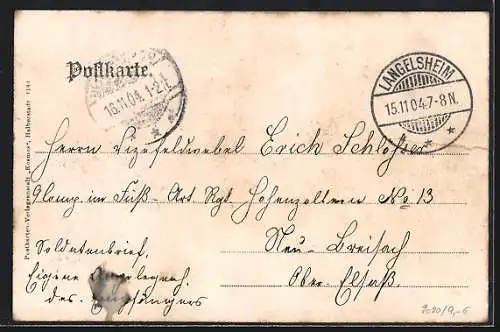 Postkarte.
16.11.04. 1-2N.
LANGELSHEIM
15.11.04.7-8N.
Herrn Vizefeldwebel Erich Schlösser
9 Comp. im Fuß-Art Rgt. Hohenzollern No 13
Neu-Breisach
Ober-Elsaß.
Soldatenbrief,
Eigene Angelegenh.
des Empfängers
Postkarten-Verlagsanstalt „Kosmos“, Halberstadt